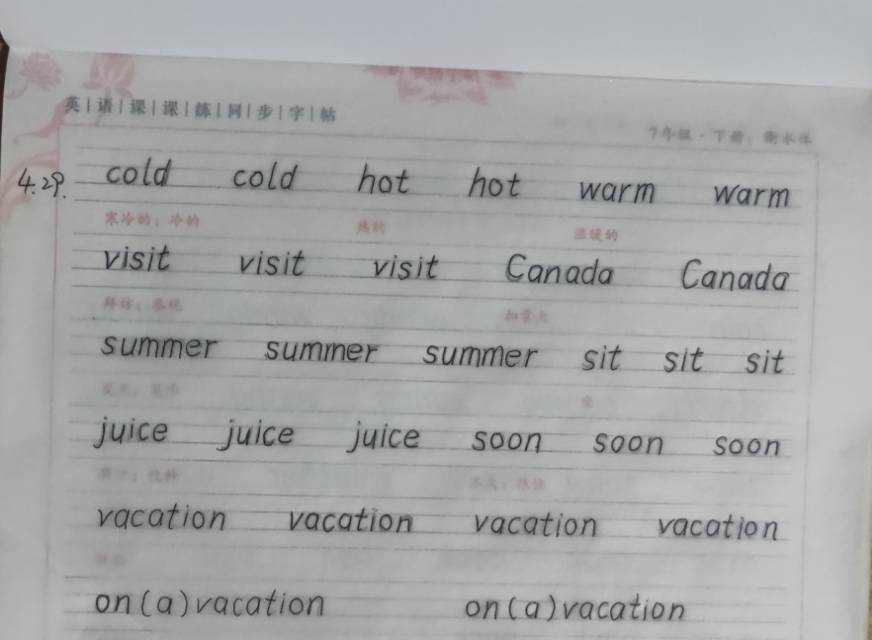 英|语|课|课|练|同|步|字|帖
7年级·下册:衡水体
4.29. cold cold hot hot warm warm
寒冷的;冷的 热的 温暖的
visit visit visit Canada Canada
拜访;参观 加拿大
summer summer summer sit sit sit
夏天;夏季 坐
juice juice juice soon soon soon
果汁;饮料 不久;很快
vacation vacation vacation vacation
on(a)vacation on(a)vacation